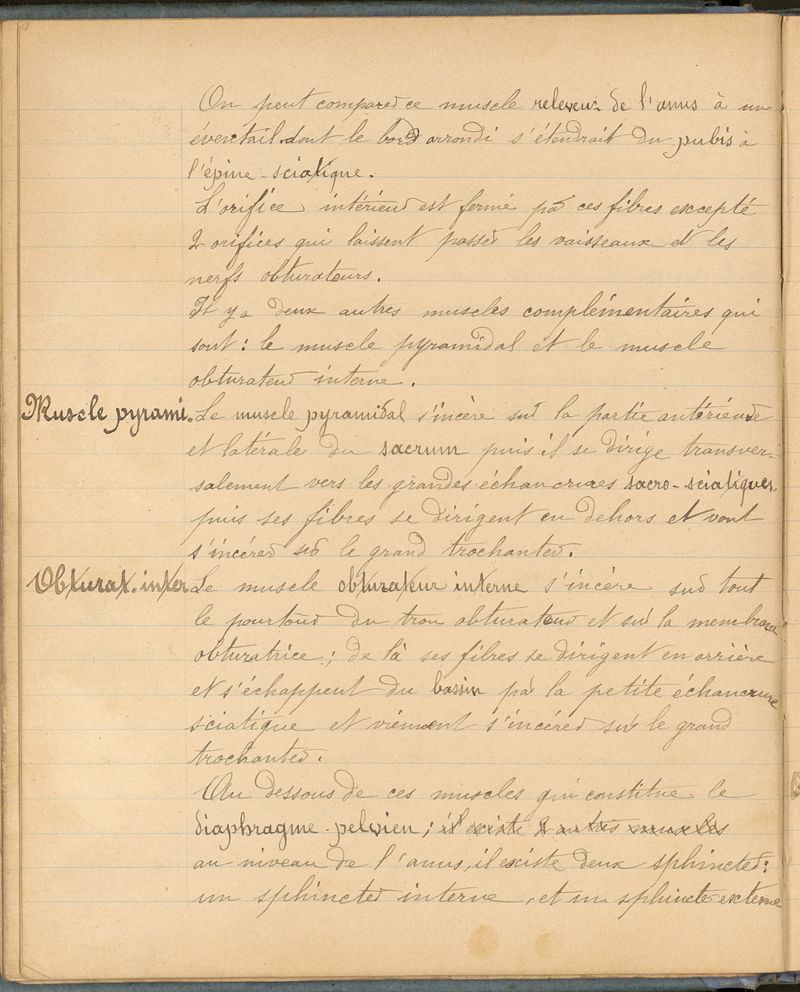 On peut comparer ce muscle releveur de l'anus à un
éventail dont le bord arrondi s'étendrait du pubis à
l'épine-sciatique.
L'orifice intérieur est fermé par ces fibres excepté
2 orifices qui laissent passer les vaisseaux et les
nerfs obturateurs.
Il y a deux autres muscles complémentaires qui
sont : le muscle pyramidal et le muscle
obturateur interne.
Muscle pyrami. Le muscle pyramidal s'incère sur la partie antérieure
et latérale du sacrum puis il se dirige transver-
salement vers les grandes échancrures sacro-sciatiques,
puis ses fibres se dirigent en dehors et vont
s'incérer sur le grand trochanter.
Obturat. inter Le muscle obturateur interne s'incère sur tout
le pourtour du trou obturateur et sur la membrane
obturatrice ; de là ses fibres se dirigent en arrière
et s'échappent du bassin par la petite échancrure
sciatique et viennent s'incérer sur le grand
trochanter.
Au dessous de ces muscles qui constitue le
diaphragme-pelvien ; il existe 2 autres muscles
au niveau de l'anus, il existe deux sphincter :
un sphincter interne, et un sphincter externe